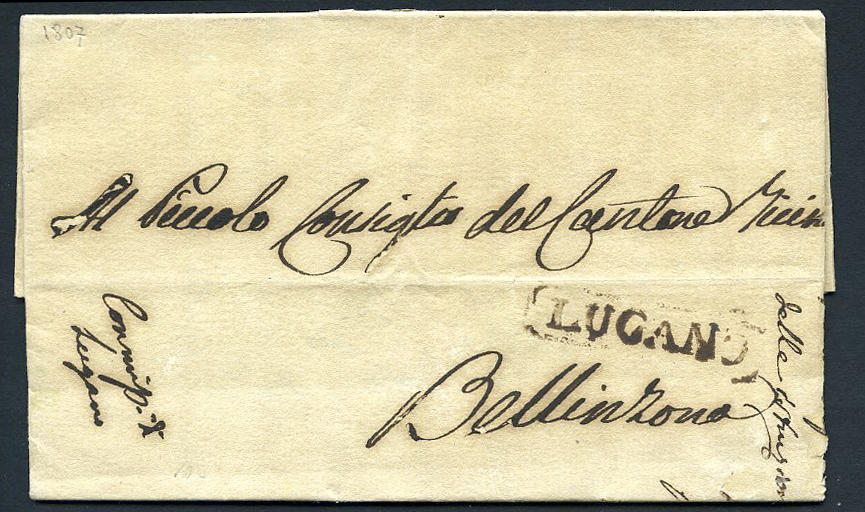 1807
Al Piccolo Consiglio del Cantone Ticin
LUGANO
Bellinzona
Lugano
della